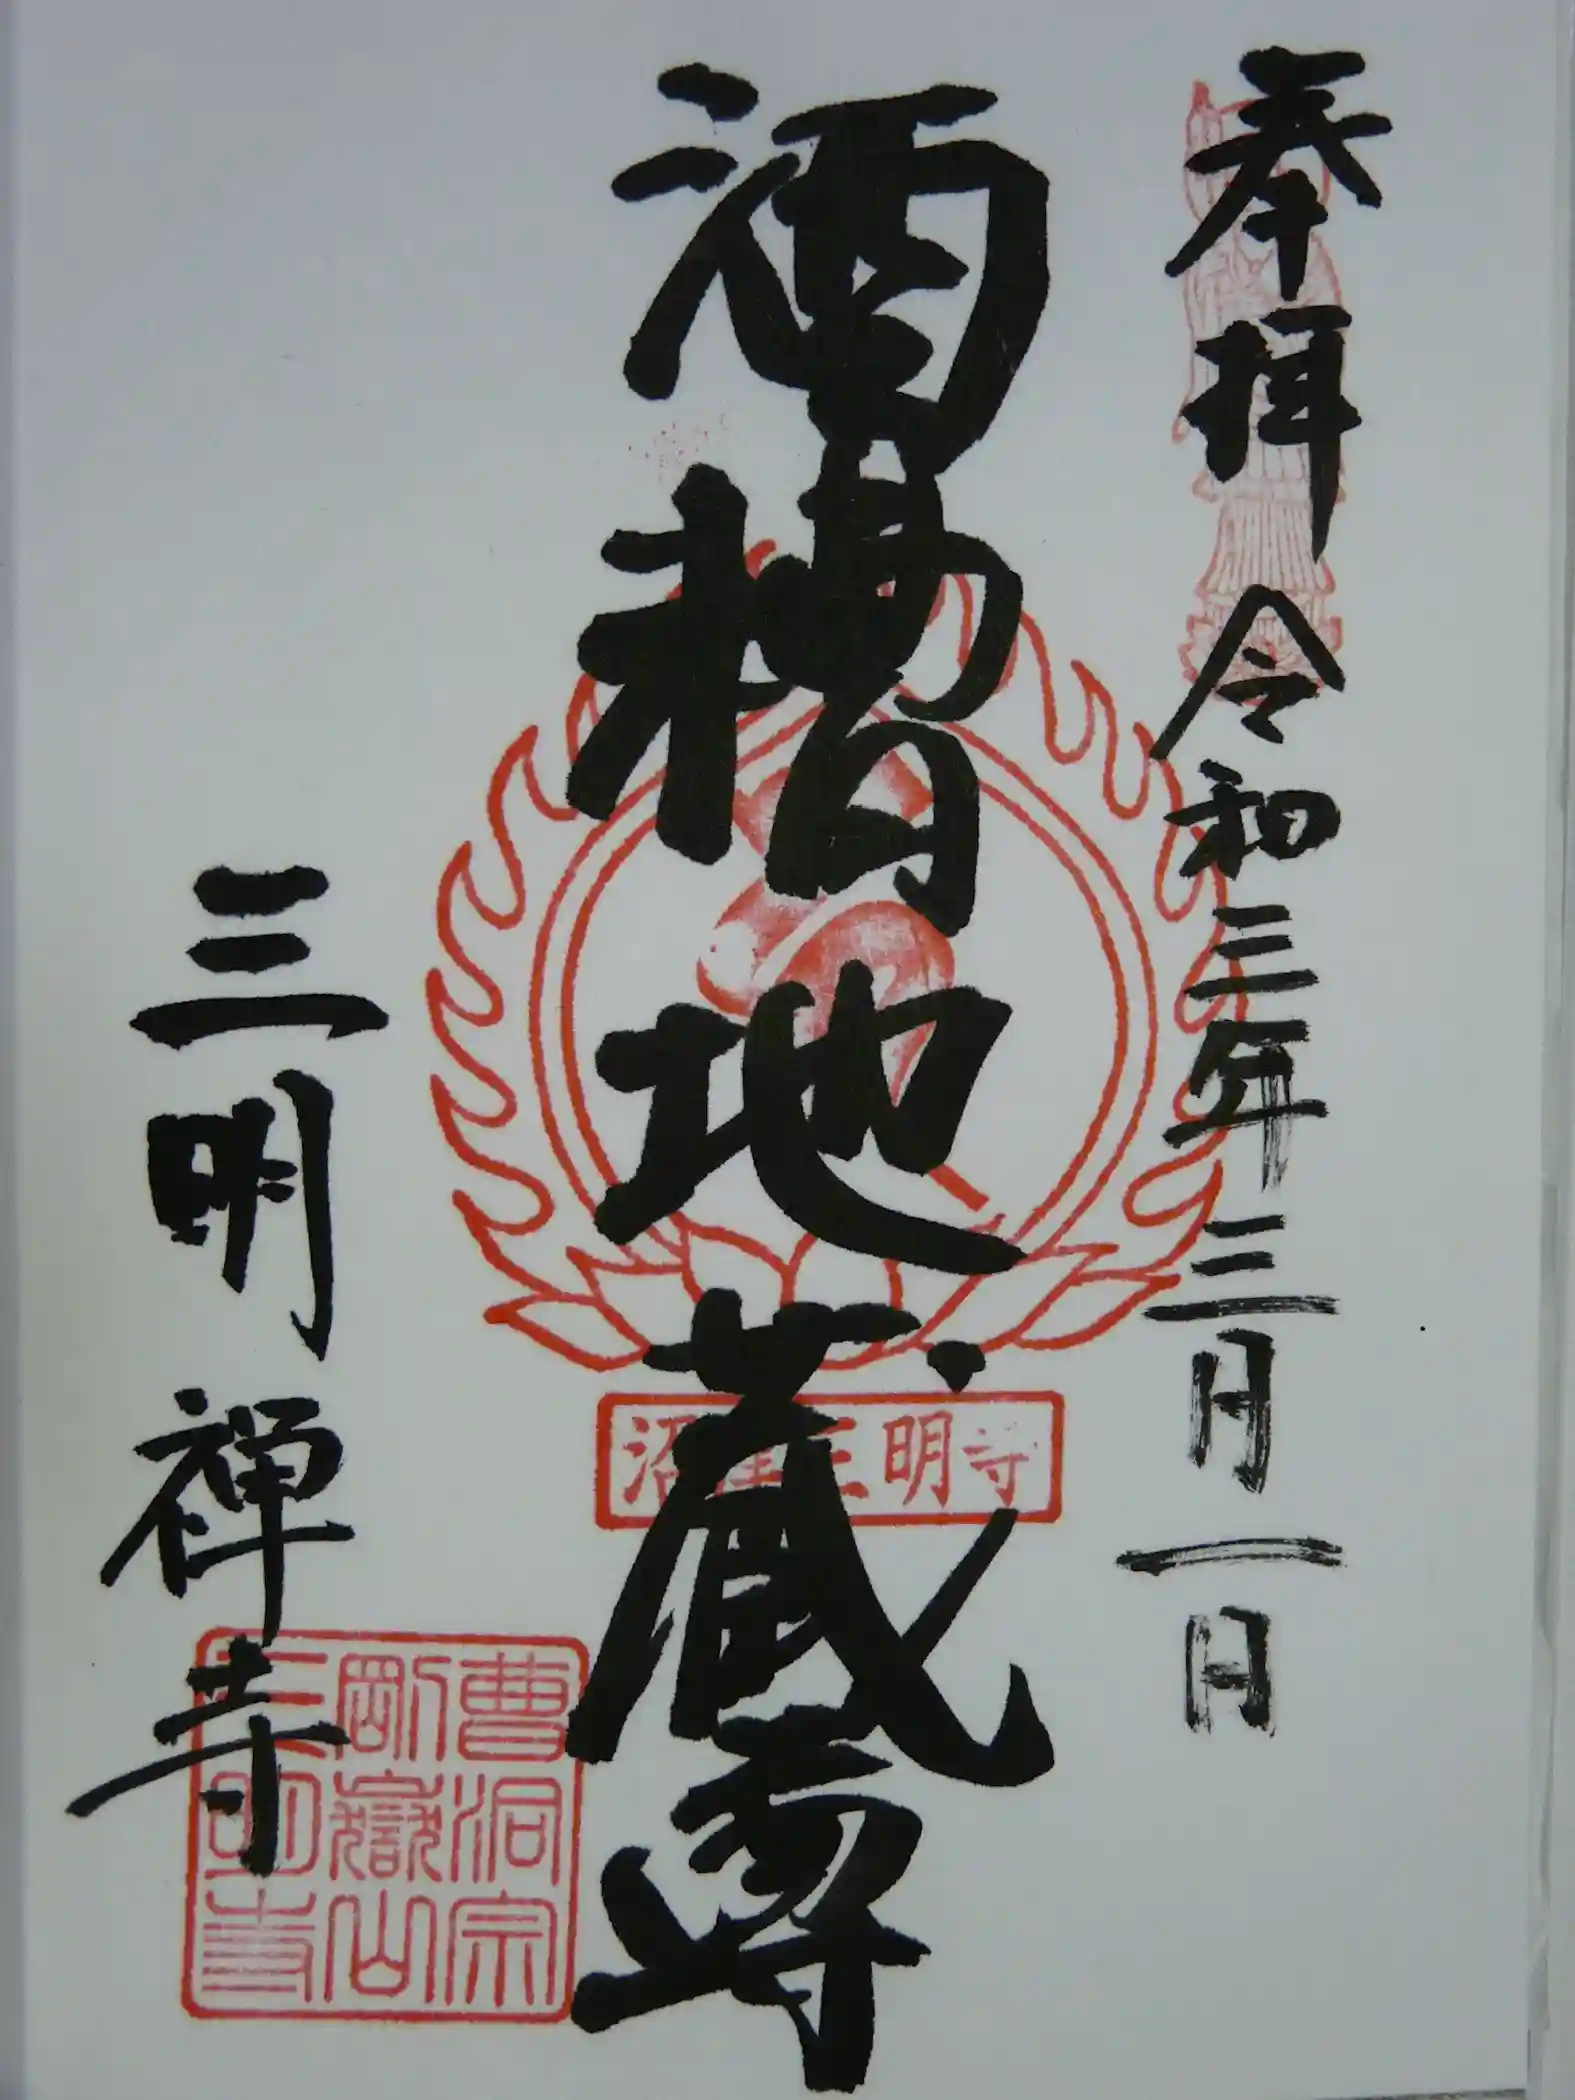 奉拝 令和三年三月一日
酒樽地蔵尊
三明禅寺
沼津三明寺
曹洞宗
剛嶽山
三明寺